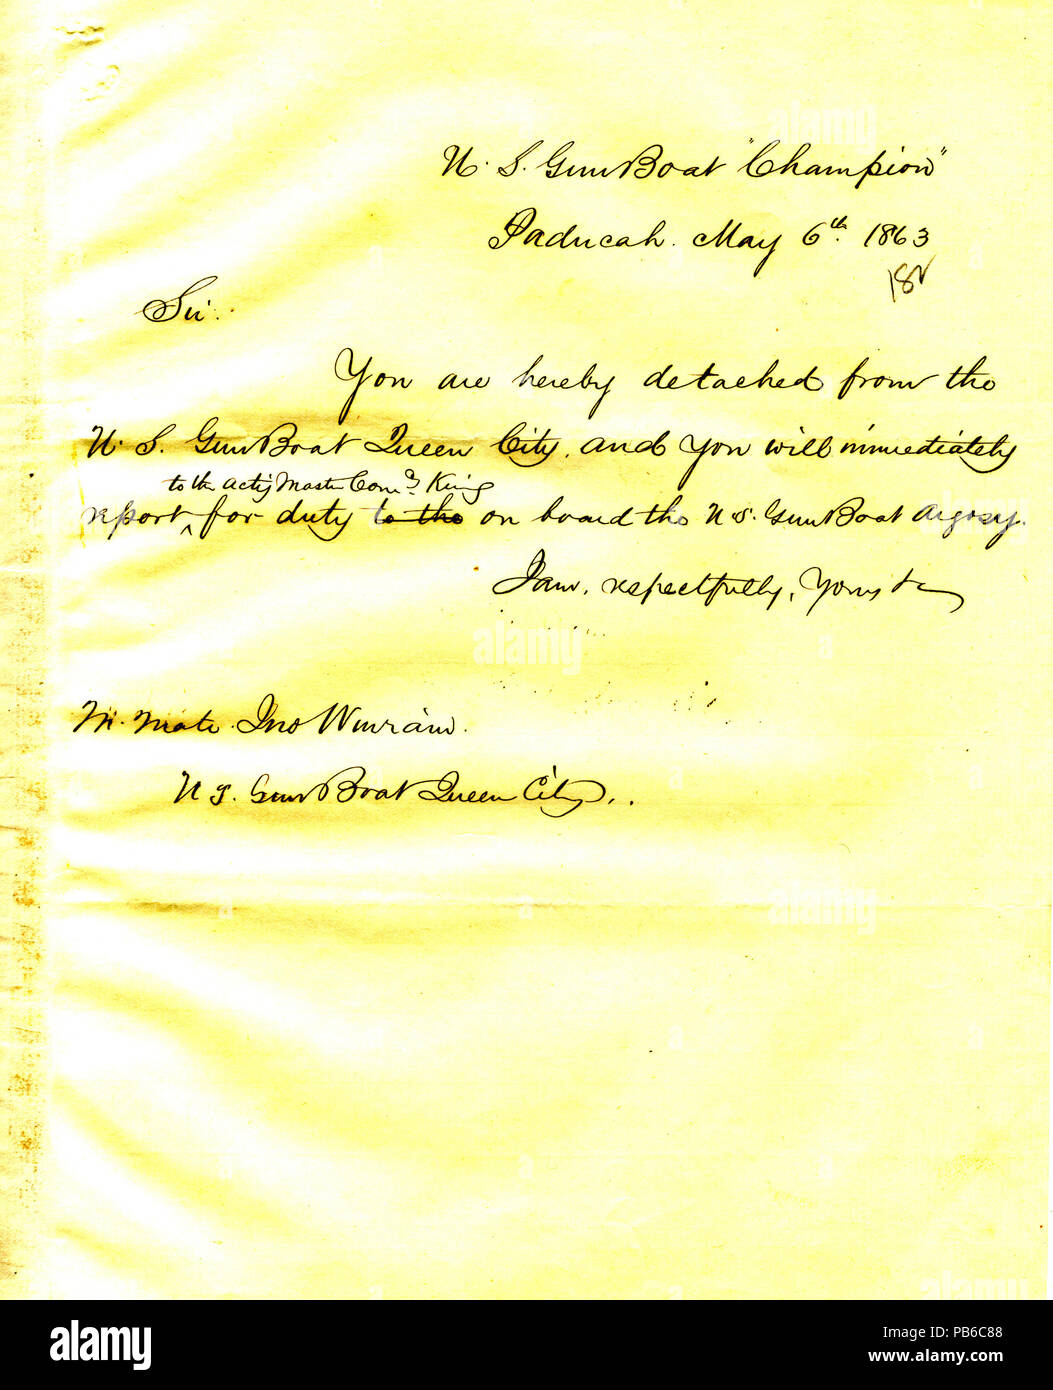 U. S. GunBoat "Champion"
Paducah. May 6th. 1863
18
Sir.
You are hereby detached from the
U. S. GunBoat Queen City, and You will immediately
to the Actg Master Comd. King
report ^ for duty to the on board the U. S. GunBoat Argosy.
I am, respectfully, Yours &c
M. Mate. Jno Winram.
U S. GunBoat Queen City.
alamy
alamy
alamy
alamy
alamy
Image ID: PB6C88
www.alamy.com